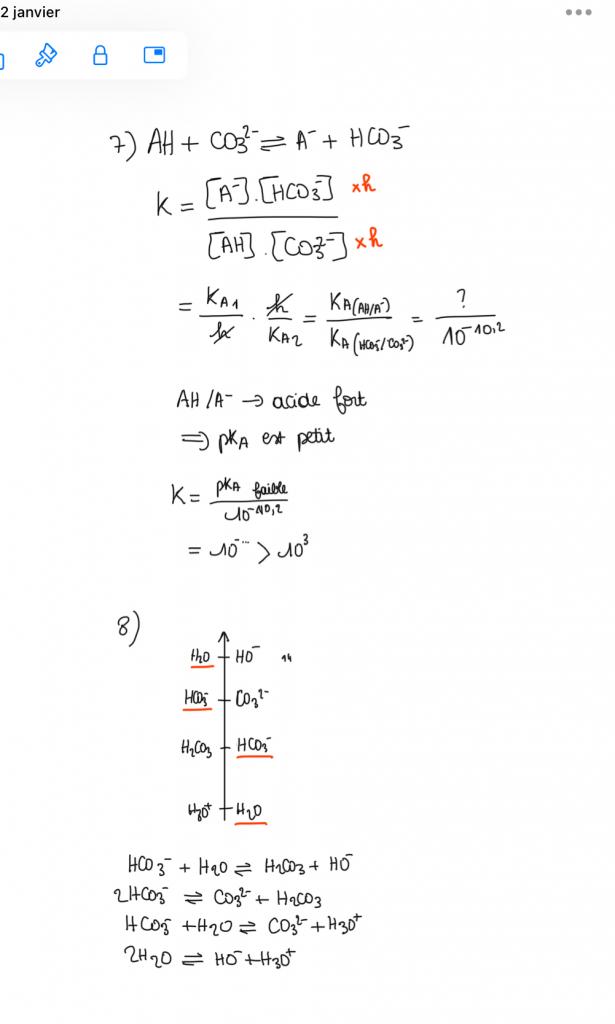 2 janvier
7) AH + CO₃²⁻ ⇌ A⁻ + HCO₃⁻
K = [A⁻].[HCO₃⁻] ×h / [AH].[CO₃²⁻] ×h
= KA1/h · h/KA2 = KA(AH/A⁻)/KA(HCO₃⁻/CO₃²⁻) = ?/10⁻¹⁰,²
AH/A⁻ → acide fort
⇒ pKA est petit
K = pKA faible / 10⁻¹⁰,²
= 10⁻··· > 10³
8)
H₂O HO⁻ 14
HCO₃⁻ CO₃²⁻
H₂CO₃ HCO₃⁻
H₃O⁺ H₂O
HCO₃⁻ + H₂O ⇌ H₂CO₃ + HO⁻
2HCO₃⁻ ⇌ CO₃²⁻ + H₂CO₃
HCO₃⁻ + H₂O ⇌ CO₃²⁻ + H₃O⁺
2H₂O ⇌ HO⁻ + H₃O⁺